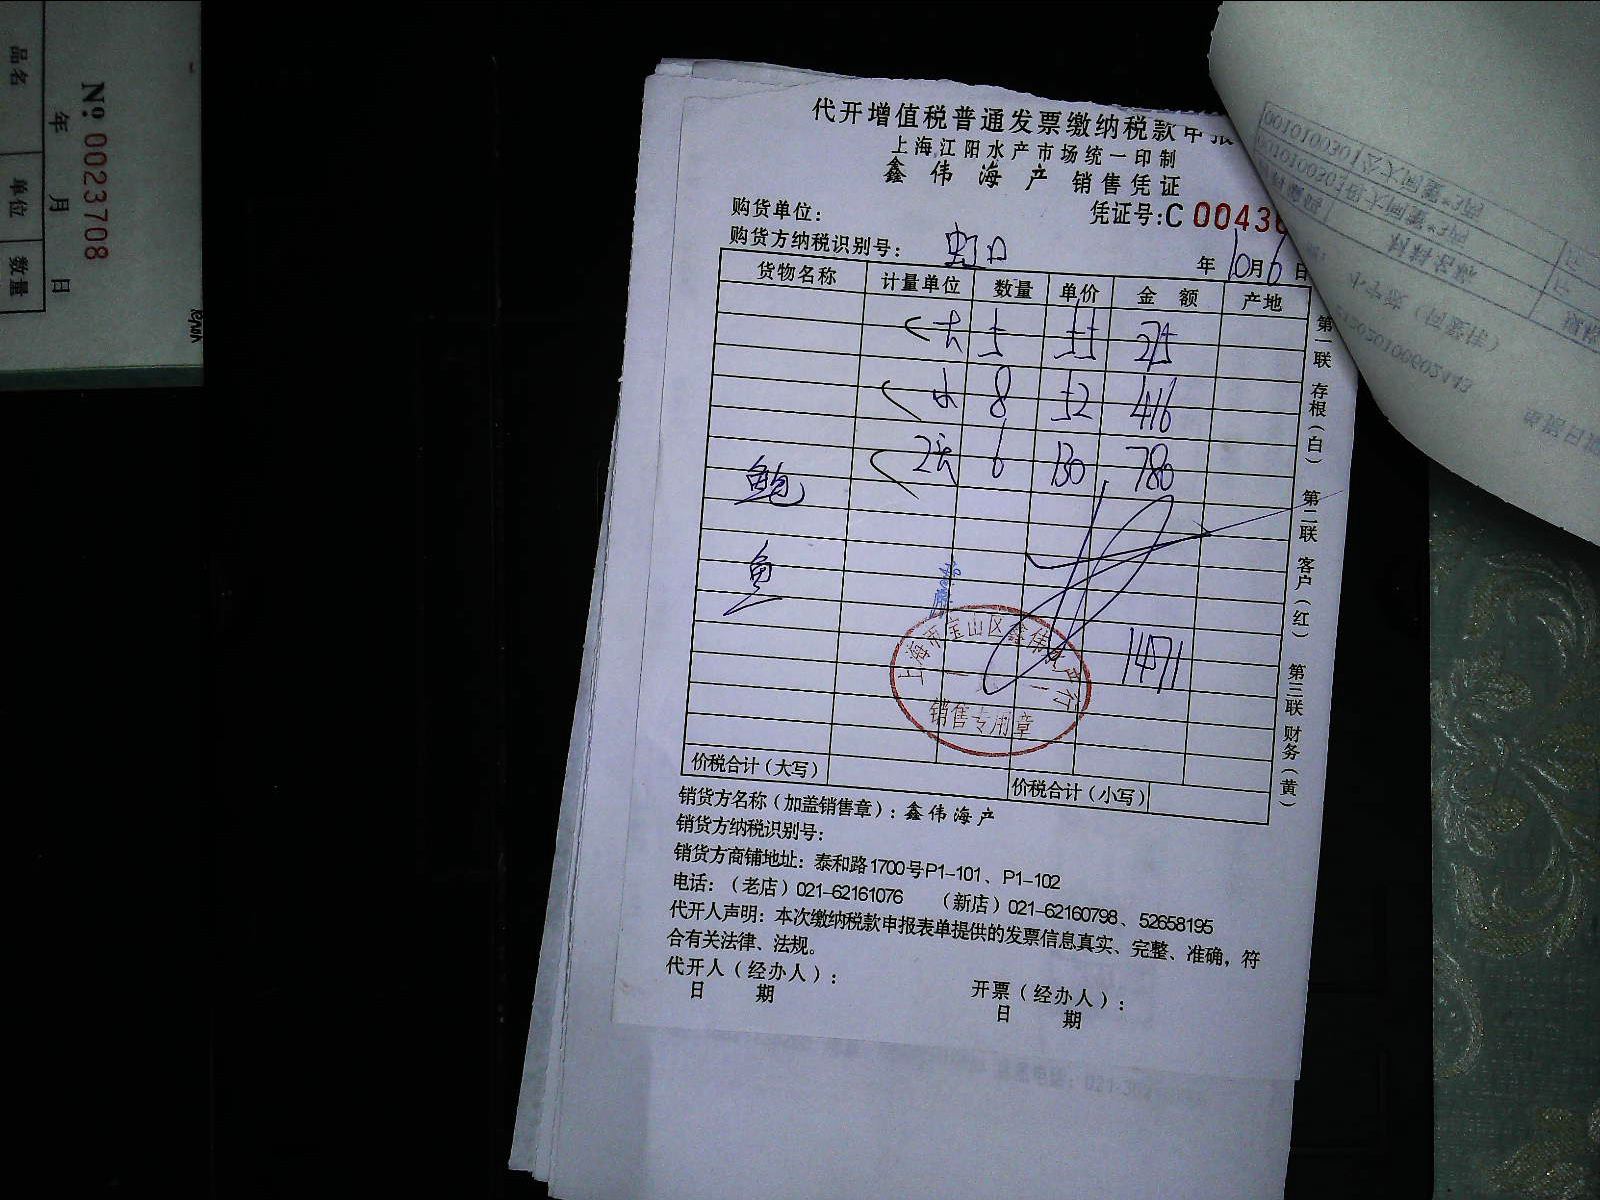 品名
单位
数量
年 月 日
№. 0023708
代开增值税普通发票缴纳税款申报
上海江阳水产市场统一印制
鑫伟海产 销售凭证
购货单位:
凭证号:C 00436
购货方纳税识别号: 虹口
年 10月6日
货物名称 计量单位 数量 单价 金额 产地
5 55 275
8 52 416
6 130 780
鲍
鱼
1471
上海市宝山区鑫伟水产行
销售专用章
价税合计(大写) 价税合计(小写)
销货方名称(加盖销售章):鑫伟海产
销货方纳税识别号:
销货方商铺地址:泰和路1700号P1-101、P1-102
电话:(老店)021-62161076 (新店)021-62160798、52658195
代开人声明:本次缴纳税款申报表单提供的发票信息真实、完整、准确,符
合有关法律、法规。
代开人(经办人): 开票(经办人):
日 期 日 期
第一联 存根(白) 第二联 客户(红) 第三联 财务(黄)